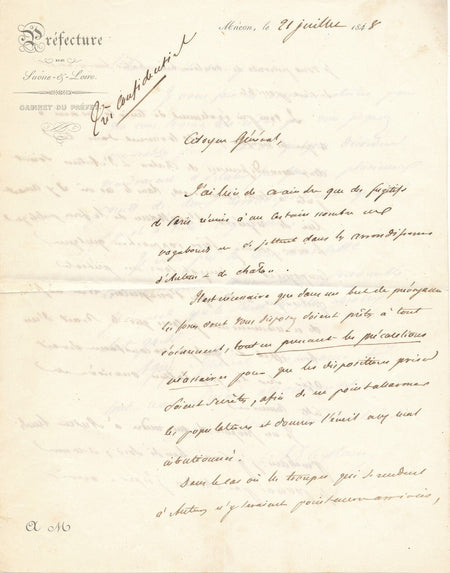 Préfecture
DE
Saône-&-Loire.
CABINET DU PRÉFET
Mâcon, le 21 juillet 1848
Très confidentiel
Citoyen Général,
J'ai lieu de craindre que des fugitifs
de Paris réunis à un certain nombre de
vagabonds ne se jettent dans les arrondissemens
d'Autun & de
Il est nécessaire que dans un but de
les forces dont vous disposez soient prêtes à tout
événement, tout en prenant les précautions
nécessaires pour que les dispositions prises
soient secrètes, afin de ne point alarmer
les populations et donner l'éveil aux mal
intentionnés.
Dans le cas où les troupes qui se rendent
à Autun n'y seraient point encore arrivées,
A M